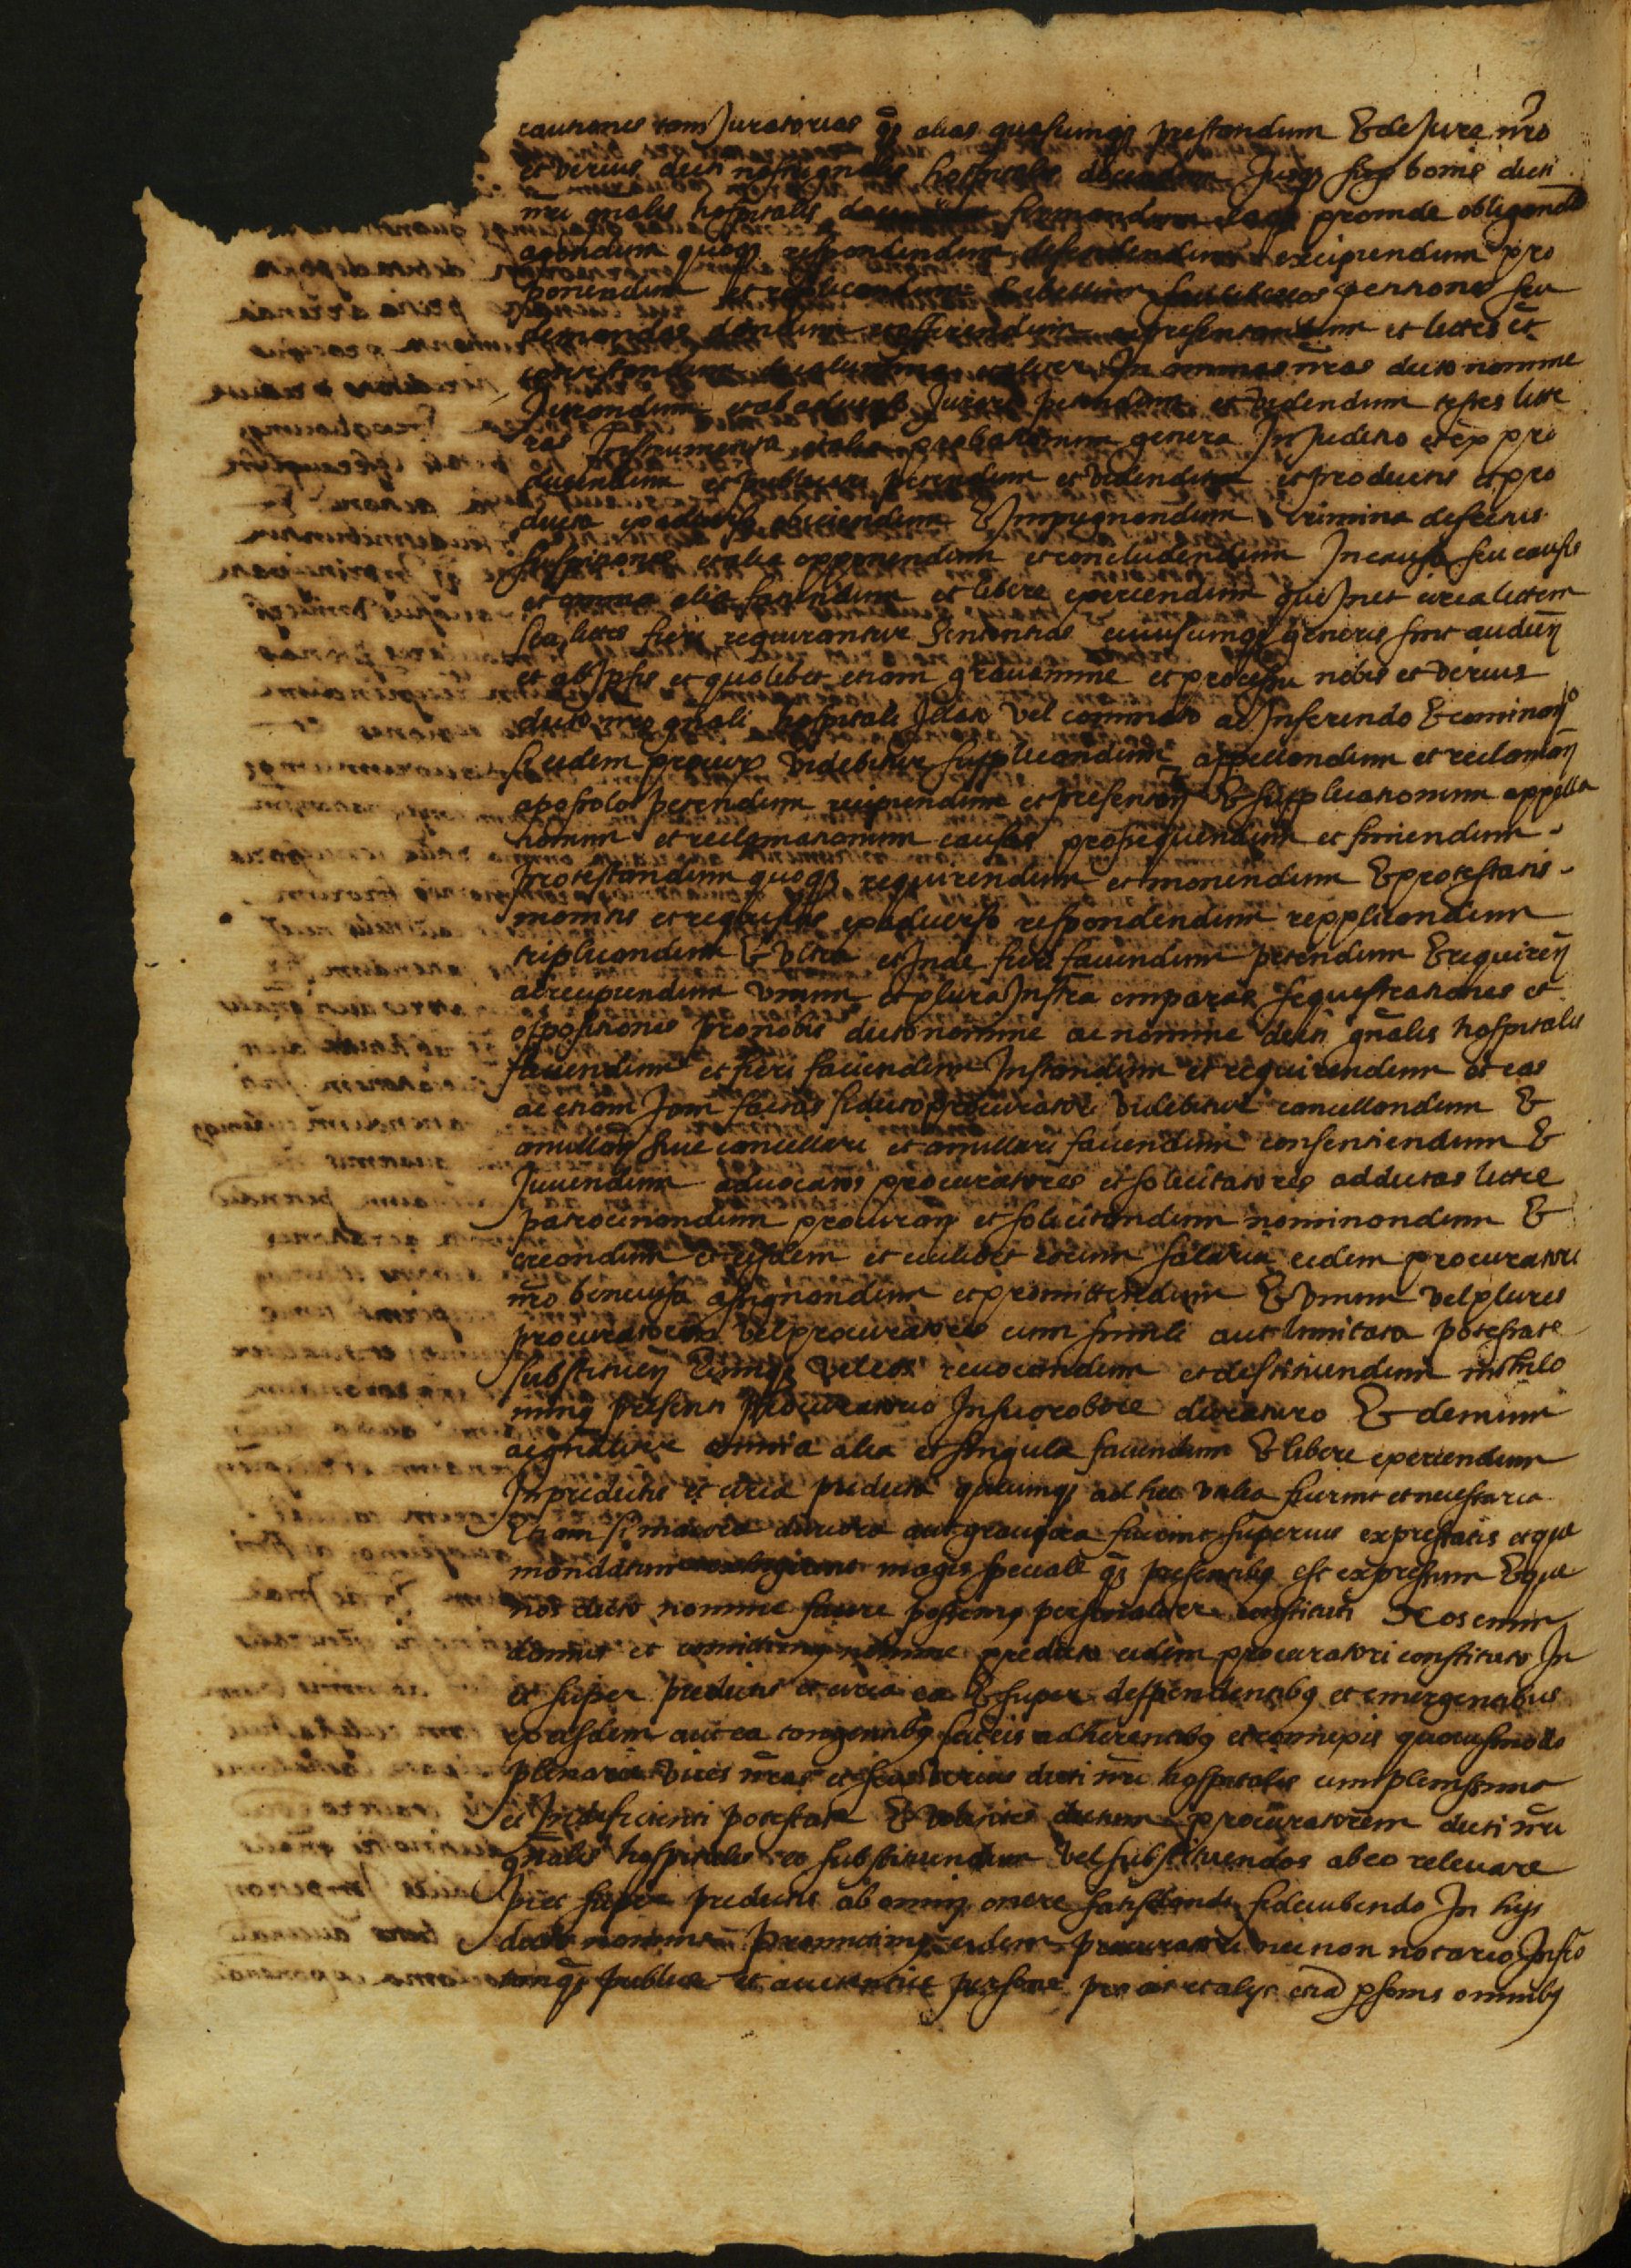 cautiones tam Juratorias q̃ꝫ alias quascumqꝫ prestandum & de Jure nr̃o
et verius dicti nostri gn̄alis hospitalis docendum Jusqꝫ sup bonis dicti
nr̃i gnalis hospitalis firmandum eaqꝫ proinde obligand
agendum quoqꝫ respondendum defendendum excipiendum pro
ponendum et replicandum libellum seu libellos petitiones seu
demandas dandum et offerendum et presentandum et lites et
contestandum de calumnia et aliter In animas nr̃as dicto nomine
Jurandum et ab adverso Jurari petendum et videndum testes litte
ras Instrumenta et alia probationum genera In Juditio et ex pro
ducendum et publicari petendum et videndum et productis et pro
ducta ex adverso obiciendum & Impugnandum crimina defectus
suspitiones et alia opponendum et concludendum In causa seu causis
et omnia alia faciendum et libere exercendum que In et circa littem
seu littes fieri requirantur Sententias cuiuscumqꝫ generis sint audiēn
et ab Ipsis et quolibet etiam gravamine et processu nobis et verius
dicto nr̃o gnali hospitali Illato vel comminato ac Inferendo & cominan
si eidem procuri videbitur supplicandum appellandum et reclamān
apostolos petendum recipiendum et presentan & supplicationum appella
tionum et reclamationum causas prosequendum et finiendum
protestandum quoqꝫ requirendum et monendum & protestatis
monitis et requisitis ex adverso respondendum repplicandum
triplicandum & ultra et Inde fieri faciendum petendum & requiren
ac recipiendum Unum et plura Instra emparas sequestrationes et
oppositiones pro nobis dicto nomine ac nomine dicti gñalis hospitalis
faciendum et fieri faciendum Instandum et requirendum et eas
ac etiam Jam factas si dicto procuratori videbitur cancellandum &
anullan sive cancellari et anullari faciendum consentiendum &
Juvendum advocatos procuratores et solicitatores ad dictas littes
patrocinandum procuran et solicitandum nominandum &
creandum et eisdem et cuilibet eorum salaria eidem procuratori
nr̃o benevisa assignandum et promittendum & Unum vel plures
procuratorem vel procuratores cum simili aut limitata potestate
substituen Eumqꝫ vel eos revocandum et destituendum nichilo
minꝰ presenti procuratorio In suo robore duraturo & demum
ac gnaliter omnia alia et singula faciendum & libere exercendum
In predictis et circa predicta quecumqꝫ ad hec utilia fuerint et necessaria
Etiam si maiora duriora aut graviora fuerint superius expressatis et que
mandatum exigerent magis speciale q̃ꝫ presentibꝰ est expressum & que
nos dicto nomine facere possemꝰ personaliter constituti Nos enim
damus et comittimꝰ nomine predicto eidem procuratori constituto In
et super predictis et circa ea & super deppendentibꝰ et emergentibus
ex eisdem aut ea tangentibꝰ seu eis adherentibꝰ et connexis quovismodo
plenarie vices nr̃as et seu verius dicti nr̃i hospitalis cum plenissima
et Indeficienti potestate & volentes dictum procuratorem dicti nr̃i
gñalis hospitalis et substituendum vel substituendos ab eo relevare
In et super predictis ab omni onere satisdandi fideiubendo In hijs
dicto nomine promittimꝰ eidem procuratori nec non notario Infr̃o
tanq̃ꝫ publice et auctentice persone pro eis et alijs etiā p̱sonis omnibꝰ